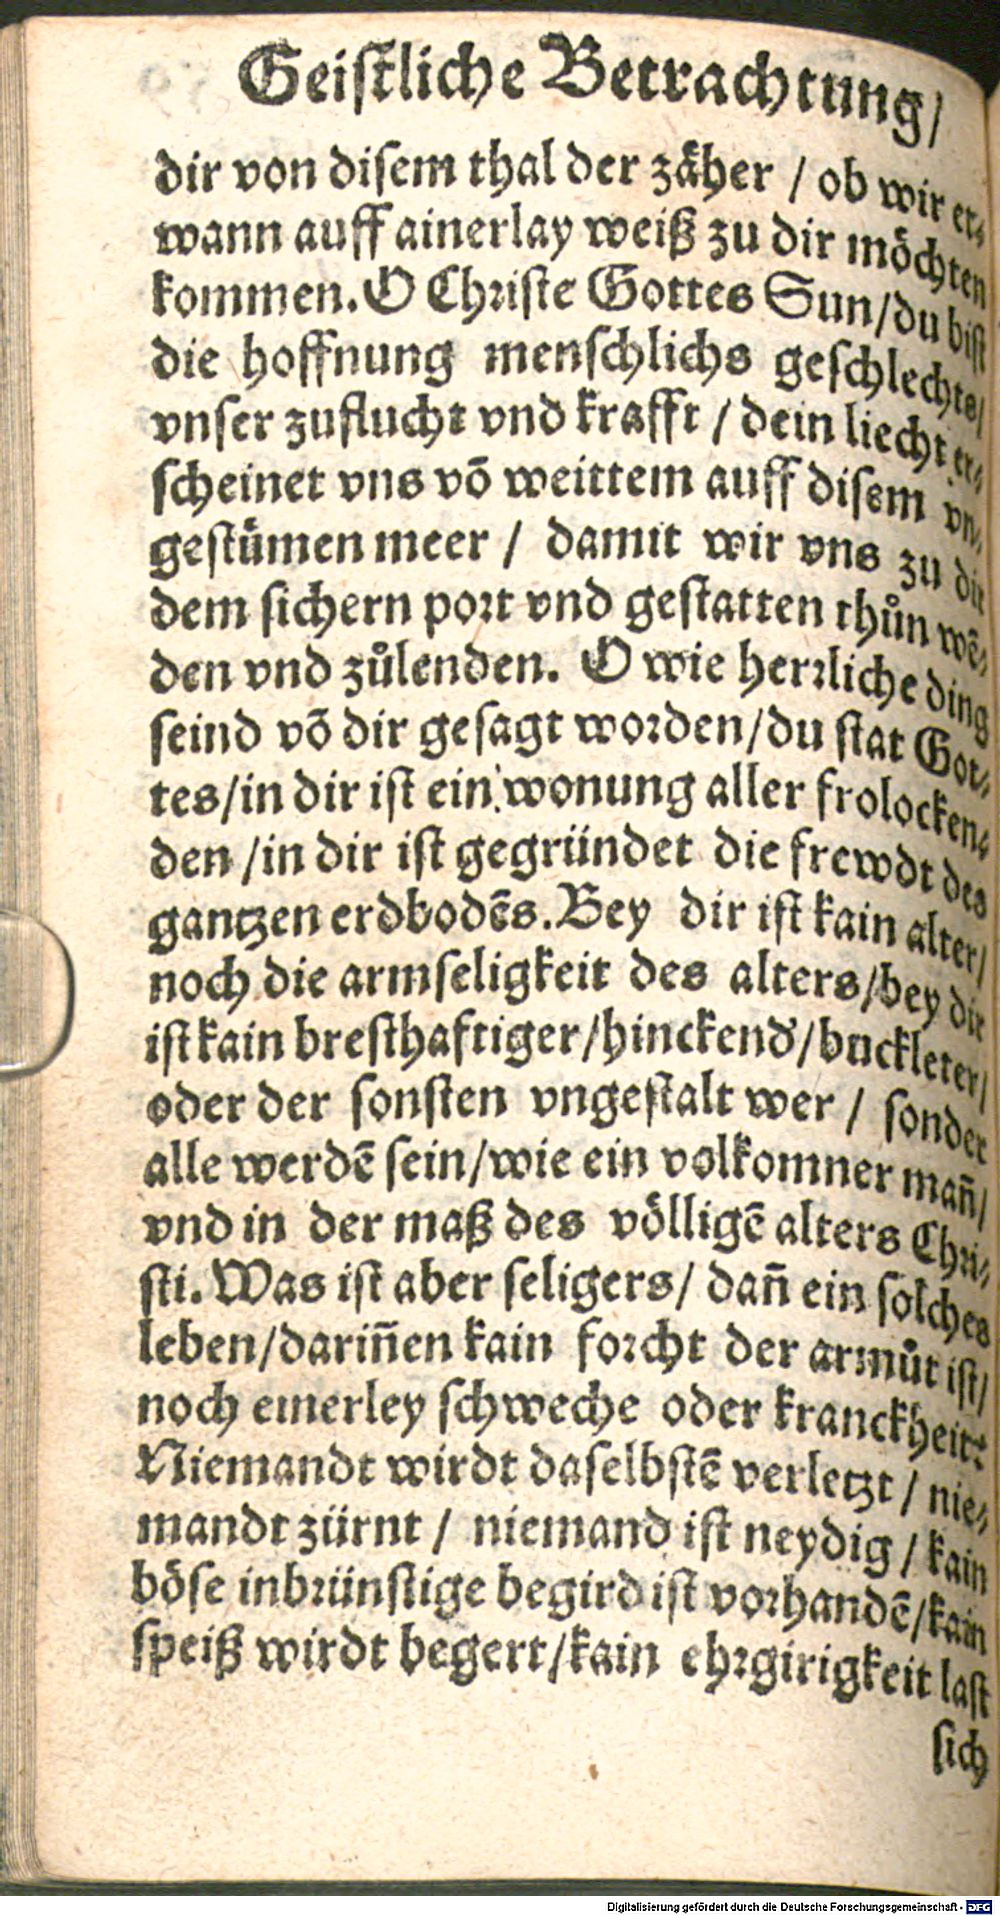 Geistliche Betrachtung/
dir von disem thal der zäher / ob wir et-
wann auff ainerlay weiß zu dir möchten
kommen. O Christe Gottes Sun/du bist
die hoffnung menschlichs geschlechts/
vnser zuflucht vnd krafft / dein liecht er-
scheinet vns võ weittem auff disem vn-
gestümen meer / damit wir vns zu dir
dem sichern port vnd gestatten thůn wẽ-
den vnd zůlenden. O wie herrliche ding
seind võ dir gesagt worden/du stat Got-
tes/in dir ist ein wonung aller frolocken-
den /in dir ist gegründet die frewdt des
gantzen erdbodẽs. Bey dir ist kain alter/
noch die armseligkeit des alters/bey dir
ist kain bresthafftiger/hinckend'/buckleter/
oder der sonsten vngestalt wer / sonder
alle werdẽ sein/wie ein volkomner mañ/
vnd in der maß des völligẽ alters Chri-
sti. Was ist aber seligers/ dañ ein solches
leben/dariñen kain forcht der armůt ist/
noch einerley schweche oder kranckheit:
Niemandt wirdt daselbstẽ verletzt / nie-
mandt zürnt / niemand ist neydig / kain
böse inbrünstige begird ist vorhandẽ/kain
speiß wirdt begert/kain ehrgirigkeit last
sich
Digitalisierung gefördert durch die Deutsche Forschungsgemeinschaft - DFG